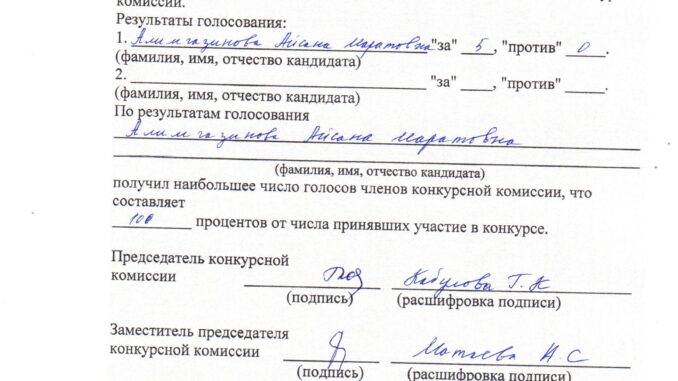 комиссии.
Результаты голосования:
1. Алимгазинова Айсана Маратовна "за" 5, "против" 0.
(фамилия, имя, отчество кандидата)
2. "за" ____, "против" ____.
(фамилия, имя, отчество кандидата)
По результатам голосования
Алимгазинова Айсана Маратовна
(фамилия, имя, отчество кандидата)
получил наибольшее число голосов членов конкурсной комиссии, что
составляет
100 процентов от числа принявших участие в конкурсе.
Председатель конкурсной
комиссии Кабулова Г. К
(подпись) (расшифровка подписи)
Заместитель председателя
конкурсной комиссии А. С
(подпись) (расшифровка подписи)